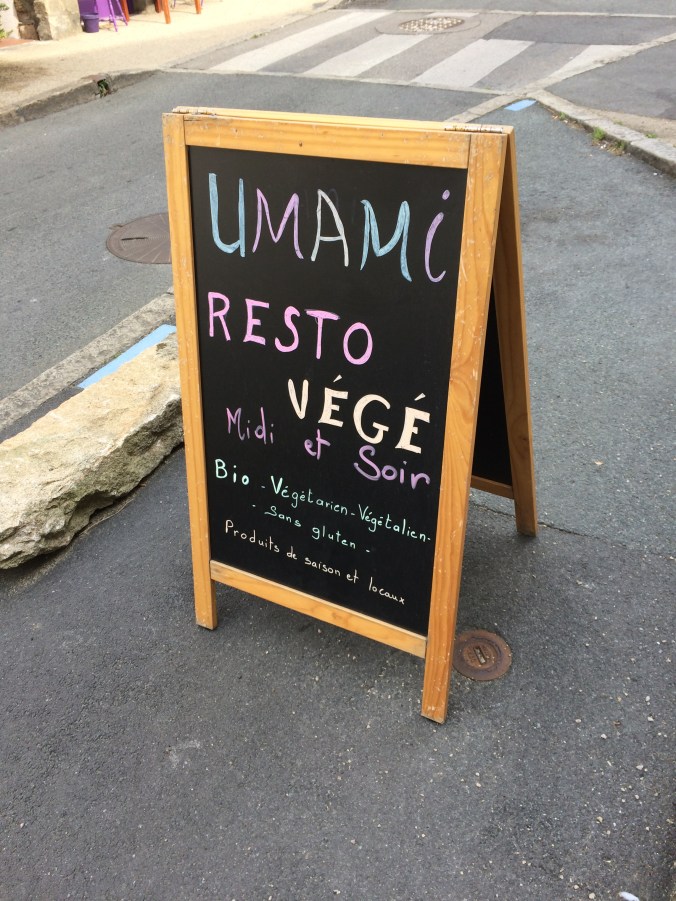 UMAMi
RESTO
VÉGÉ
Midi et Soir
Bio - Végétarien - Végétalien -
- Sans gluten -
Produits de saison et locaux